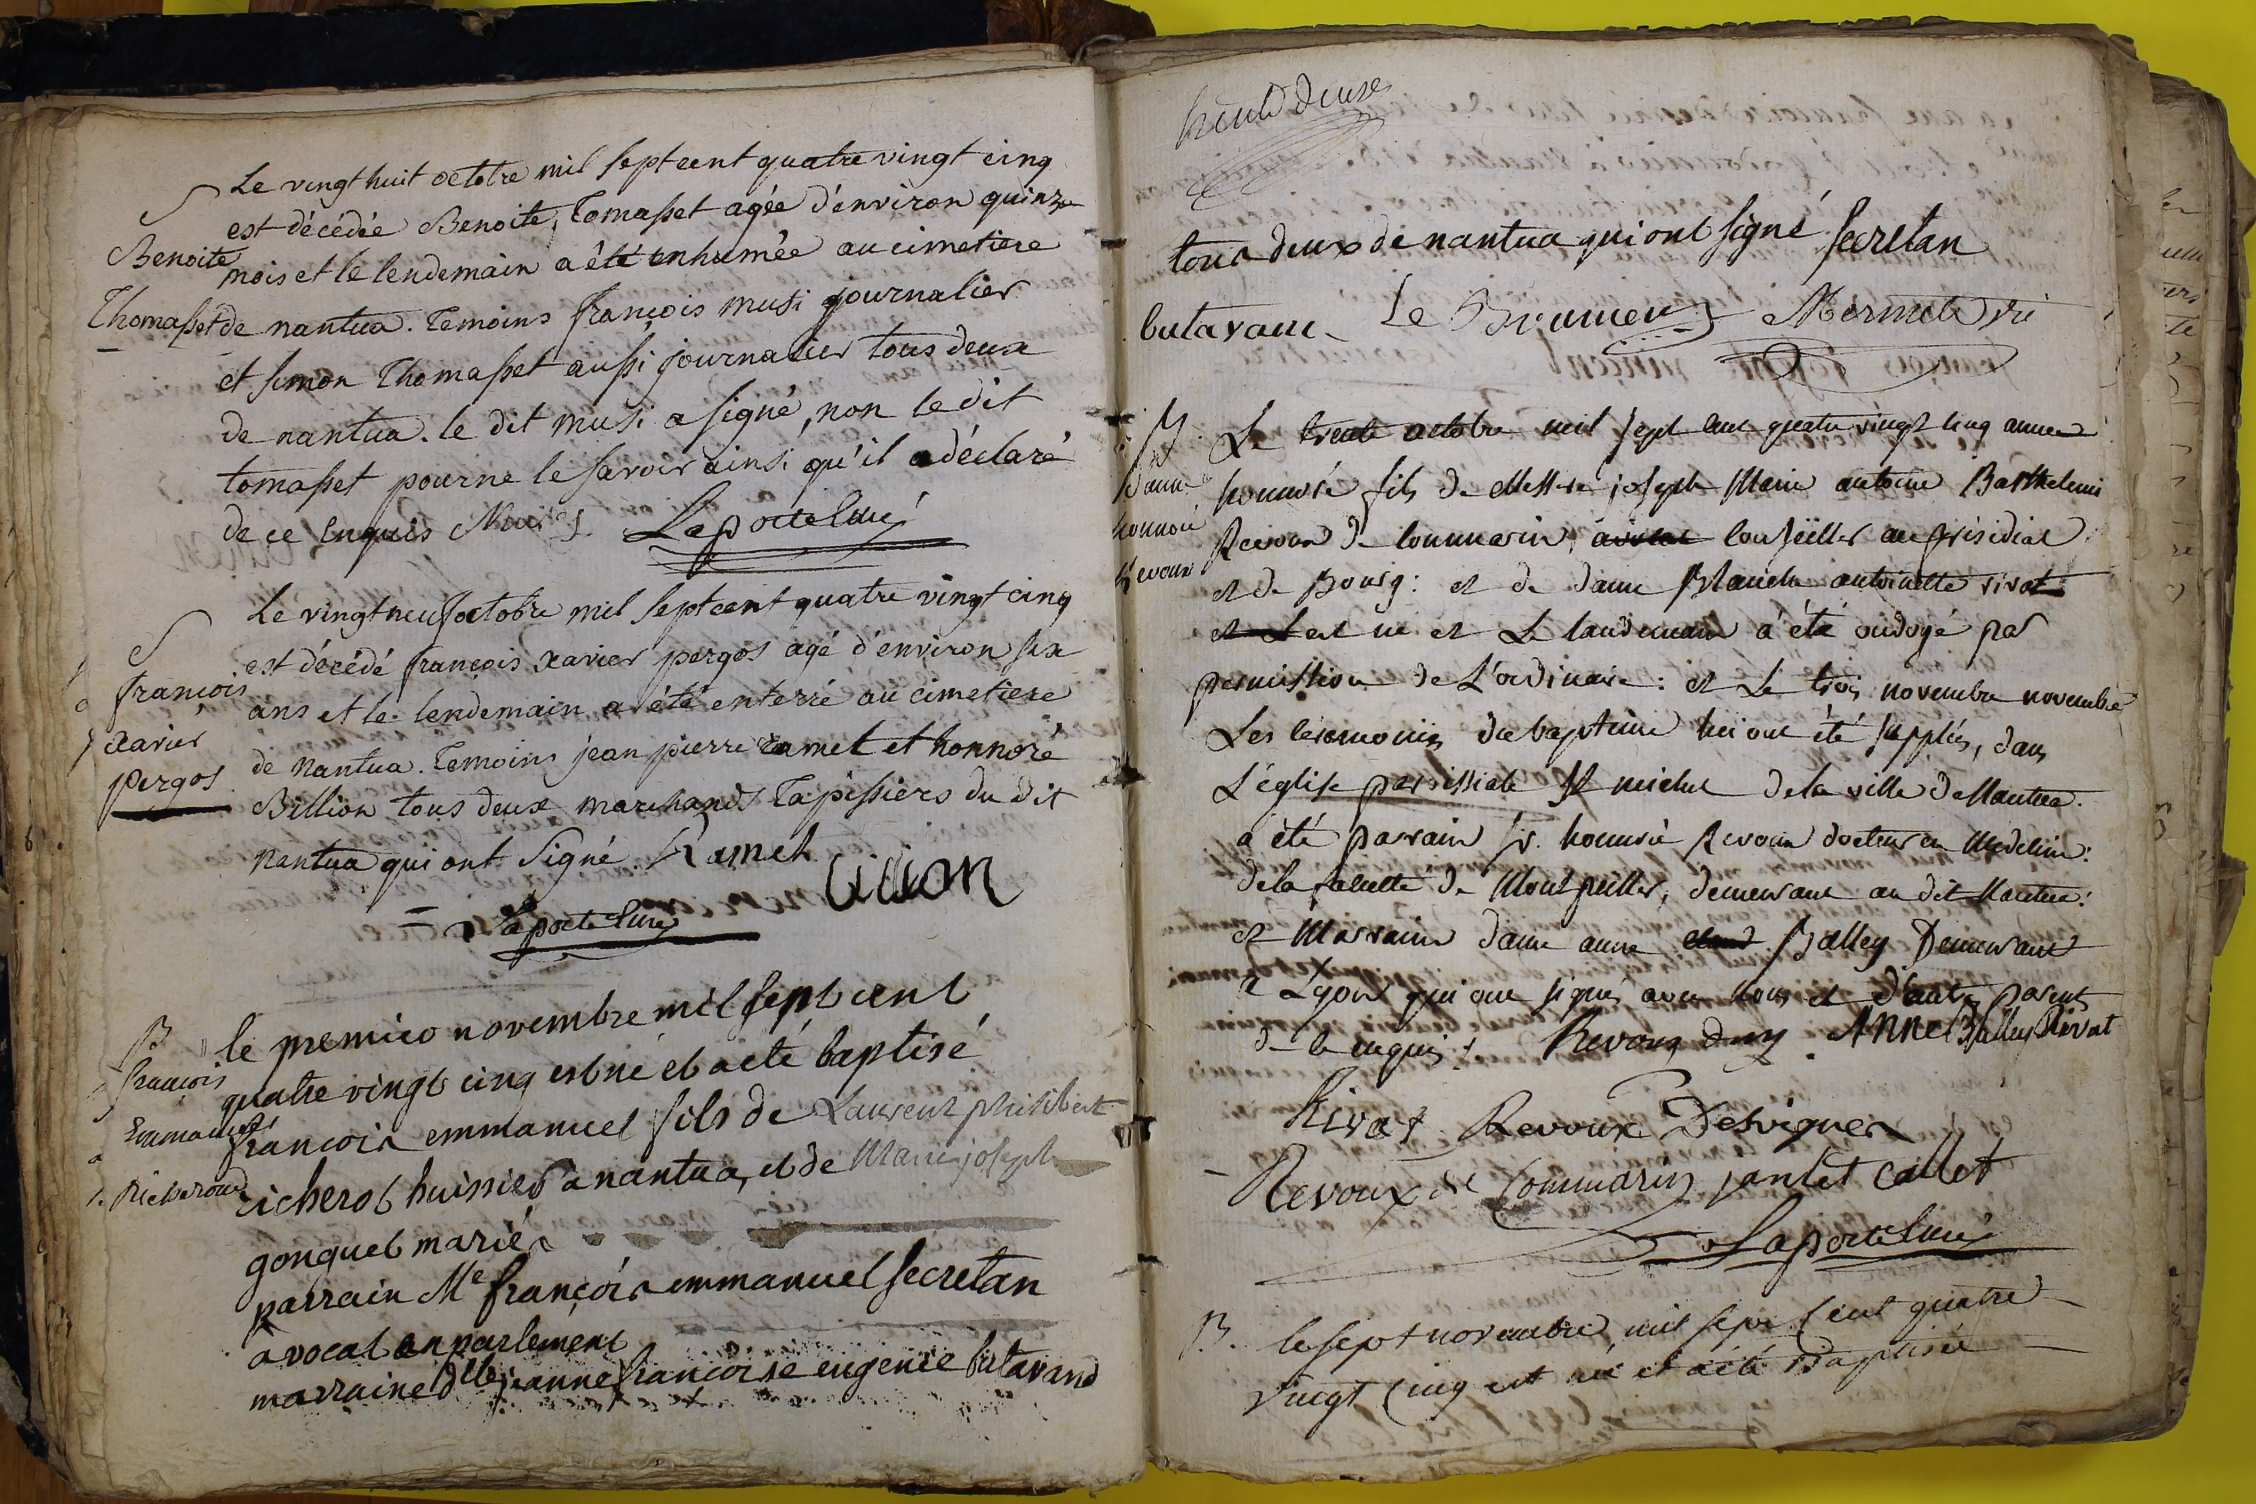 S
Benoite
Thomasset
Le vingt huit octobre mil sept cent quatre vingt cinq
est décédée Benoite Tomasset agée d'environ quinze
mois et le lendemain a été enhumée au cimetiere
de nantua. Temoins françois musi journalier
et simon Thomasset aussi journalier tous deux
de nantua. le dit musi a signé, non le dit
tomasset pour ne le savoir ainsi qu'il a déclaré
de ce enquis Laporte curé
S
françois
xavier
pergos
Le vingt neuf octobre mil sept cent quatre vingt cinq
est décédé françois xavier pergos agé d'environ six
ans et le lendemain a été enterré au cimetiere
de nantua. Temoins jean pierre ramel et honnoré
Billion tous deux marchands Tapissiers du dit
nantua qui ont signé Ramel
billion
Laporte curé
B
françois
Emmanuel
Richerod
le premier novembre mil sept cent
quatre vingt cinq est né et a été baptisé
françois emmanuel fils de Laurent philibert
richerot huissier a nantua, et de Marie joseph
gonguet mariés
parrain Me françois emmanuel secretan
avocat en parlement
marraine dlle jeanne francoise eugenie butavand
tous deux de nantua qui ont signé secretan
butavane Mermet
B
honnoré
Revoux
Le trente octobre mil sept cent quatre vingt cinq
honnoré fils de Messire joseph Marie antoine Barthelemi
Revoux de Commarin, conseiller au présidial
de Bourg: et de dame Blanche antoinette rivat
est né et le landemain a été ondoyé par
permission de L'ordinaire: et le trois novembre novembre
Les ceremonies du baptême lui ont été supplées, dans
L'église parroissiale St michel de la ville de Nantua.
a été parrain sr. honnoré Revoux docteur en Medecine
de la faculté de Montpellier, demeurant au dit Nantua:
et Marraine dame anne Balley Demeurant
a Lyon qui ont signé avec nous et d'autres parents
de ce enquis. Revoux Anne Balley Rivat
Rivat Revoux Desvignes
Revoux de Commarin jantet Callet
Laporte curé
B.
le sept novembre mil sept cent quatre
vingt cinq est né et a été Baptisé